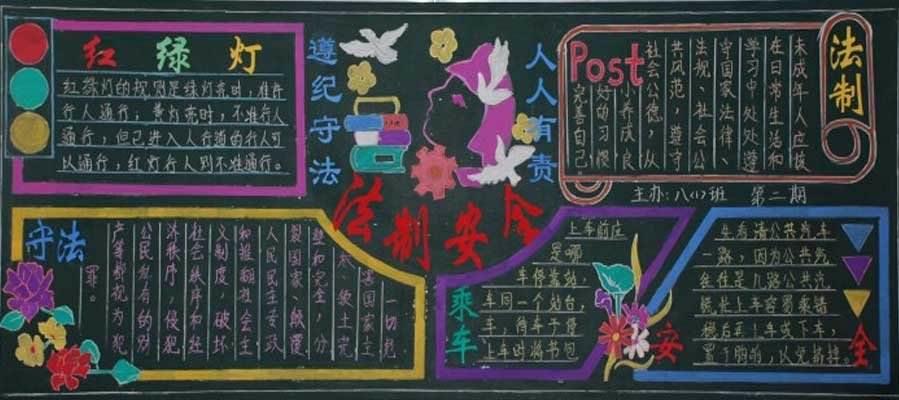 红绿灯
红绿灯的规则是绿灯亮时,准许
行人通行;黄灯亮时,不准行人
通行,但已进入人行道的行人可
以通行,红灯行人则不准通行。
遵纪守法
人人有责
Post
法制
未成年人应该
在日常生活和
学习中处处遵
守国家法律、
法规、社会公
共风范,遵守
社会公德,从
小养成良
好的习惯
完善自己
主办:八(1)班 第二期
法制安全
守法
一切危
害国家主
权、领土完
整和完全,分
裂国家、颠覆
人民民主专政
和推翻社会主
义制度,破坏
社会秩序和经
济秩序,侵犯
公民私有的财
产等都视为犯
罪。
乘车
上车前应
是哪
车停靠站
车同一个站台,
车,待车子停
上车时将书包
安全
先看清公共汽车
一路,因为公共汽
往往是几路公共汽
慌忙上车容易乘错
稳后再上车或下车,
置于胸前,以免挤掉。